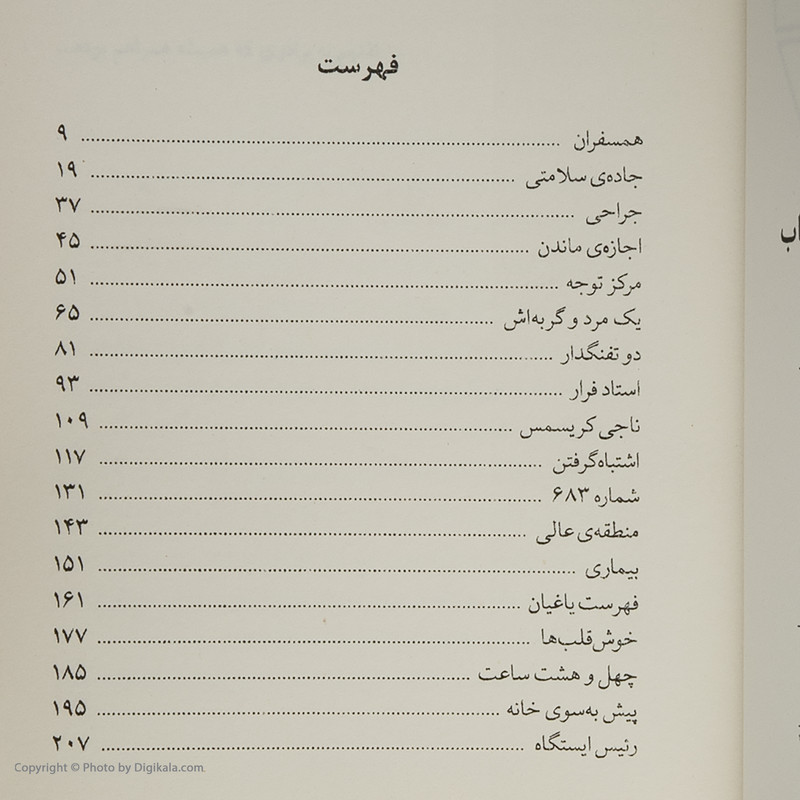 فهرست
همسفران ........ ۹
جاده‌ی سلامتی ........ ۱۹
جراحی ........ ۳۷
اجازه‌ی ماندن ........ ۴۵
مرکز توجه ........ ۵۱
یک مرد و گربه‌اش ........ ۶۵
دو تفنگدار ........ ۸۱
استاد فرار ........ ۹۳
ناجی کریسمس ........ ۱۰۹
اشتباه‌گرفتن ........ ۱۱۷
شماره ۶۸۳ ........ ۱۳۱
منطقه‌ی عالی ........ ۱۴۳
بیماری ........ ۱۵۱
فهرست یاغیان ........ ۱۶۱
خوش‌قلب‌ها ........ ۱۷۷
چهل و هشت ساعت ........ ۱۸۵
پیش به‌سوی خانه ........ ۱۹۵
رئیس ایستگاه ........ ۲۰۷
Copyright © Photo by Digikala.com